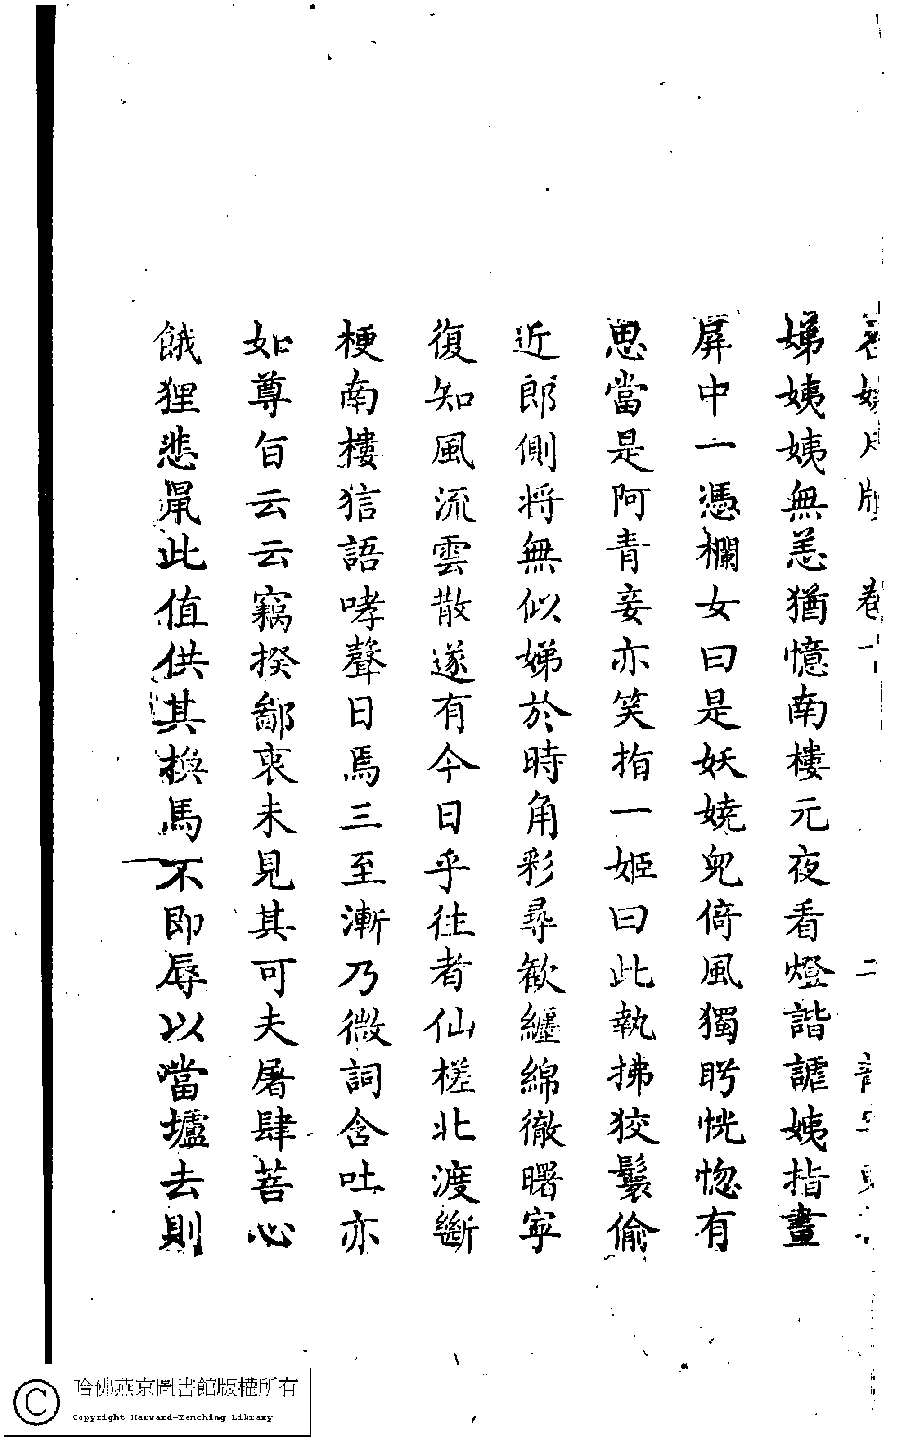 娣姨姨無恙猶憶南樓元夜看燈諧謔姨指畫
屏中一憑欄女曰是妖嬈兒倚風獨盻恍惚有
思當是阿青妾亦笑指一姬曰此執拂狡鬟偷
近郎側将無似娣於時角彩尋歡纏綿徹曙寧
復知風流雲散遂有今日乎徃者仙槎北渡斷
梗南樓狺語哮聲日焉三至漸乃微詞含吐亦
如尊旨云云竊揆鄙衷未見其可夫屠肆菩心
餓狸悲鼠此值供其換馬不即辱以當壚去則
哈佛燕京圖書館版權所有
Copyright Harvard-Yenching Library